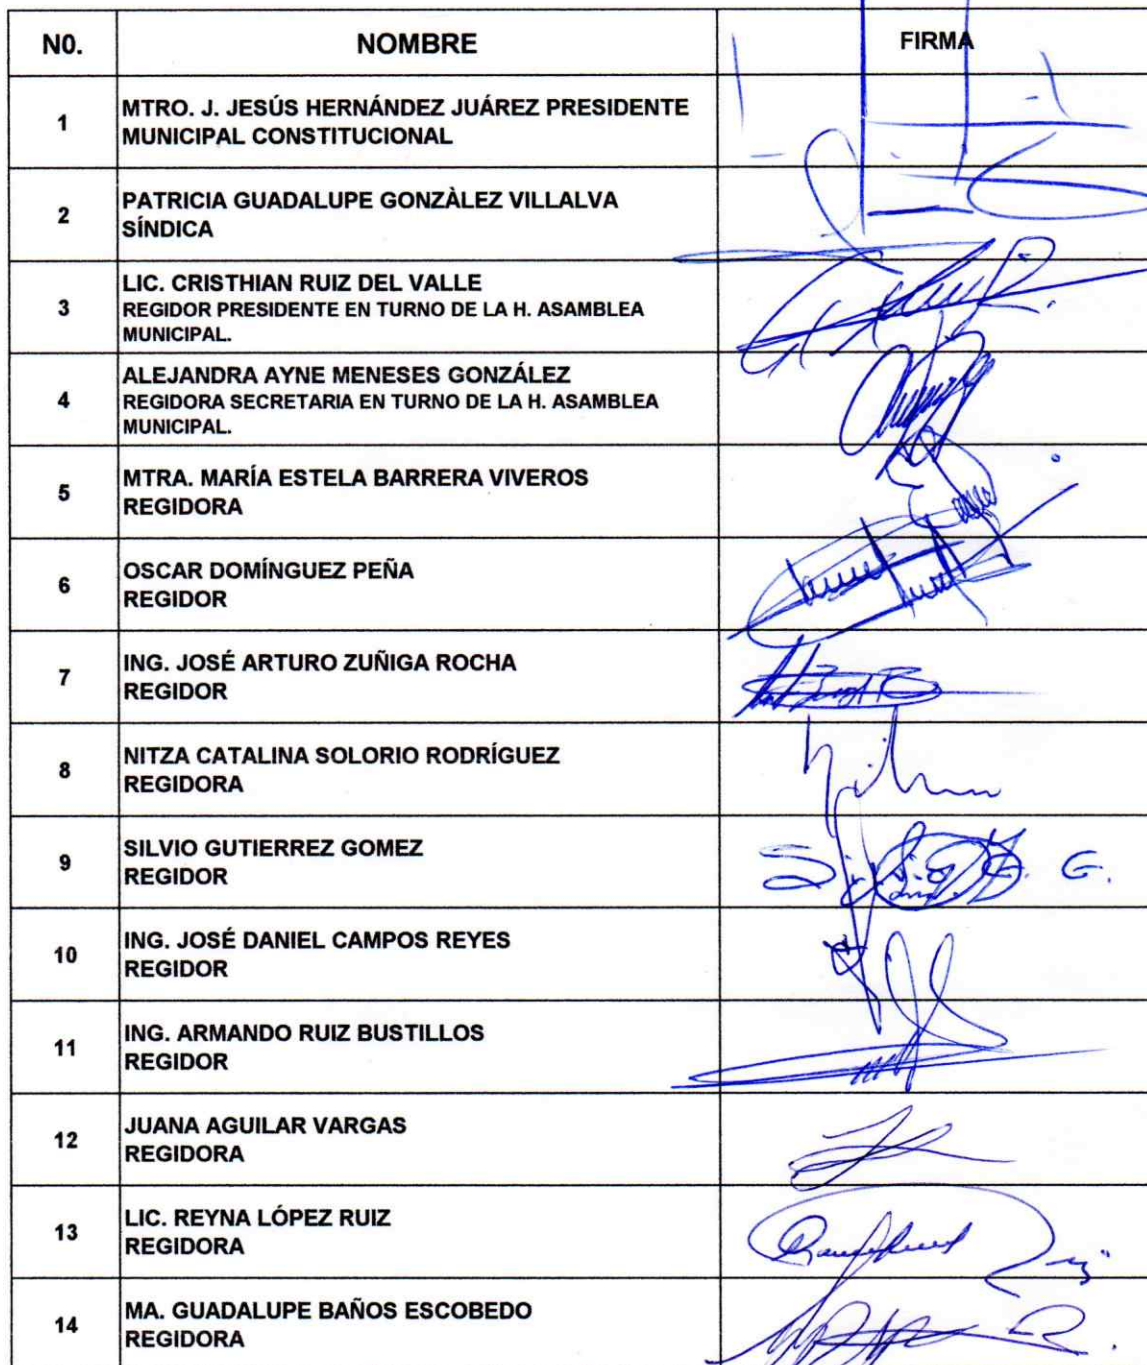 N0. NOMBRE FIRMA
1 MTRO. J. JESÚS HERNÁNDEZ JUÁREZ PRESIDENTE
MUNICIPAL CONSTITUCIONAL
2 PATRICIA GUADALUPE GONZÀLEZ VILLALVA
SÍNDICA
3 LIC. CRISTHIAN RUIZ DEL VALLE
REGIDOR PRESIDENTE EN TURNO DE LA H. ASAMBLEA
MUNICIPAL.
4 ALEJANDRA AYNE MENESES GONZÁLEZ
REGIDORA SECRETARIA EN TURNO DE LA H. ASAMBLEA
MUNICIPAL.
5 MTRA. MARÍA ESTELA BARRERA VIVEROS
REGIDORA
6 OSCAR DOMÍNGUEZ PEÑA
REGIDOR
7 ING. JOSÉ ARTURO ZUÑIGA ROCHA
REGIDOR
8 NITZA CATALINA SOLORIO RODRÍGUEZ
REGIDORA
9 SILVIO GUTIERREZ GOMEZ
REGIDOR
10 ING. JOSÉ DANIEL CAMPOS REYES
REGIDOR
11 ING. ARMANDO RUIZ BUSTILLOS
REGIDOR
12 JUANA AGUILAR VARGAS
REGIDORA
13 LIC. REYNA LÓPEZ RUIZ
REGIDORA
14 MA. GUADALUPE BAÑOS ESCOBEDO
REGIDORA